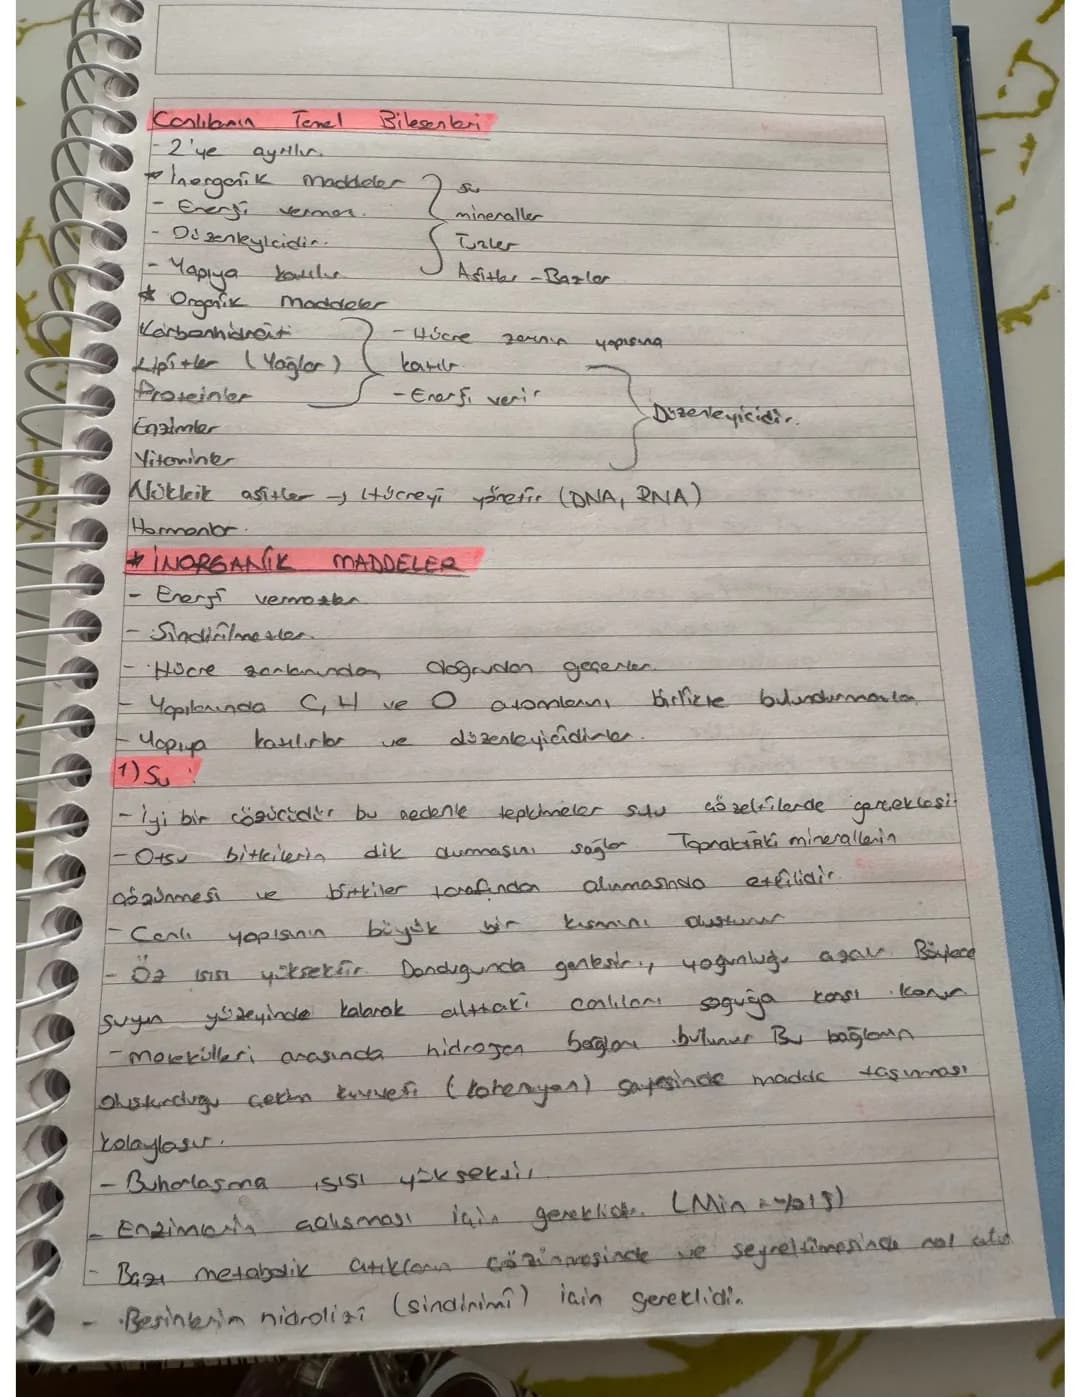 Canlıların Temel Bileşenleri
- 2'ye ayrılır.
* İnorganik Maddeler
su
- Enerji vermez.
mineraller
- Düzenleyicidir.
Tuzlar
- Yapıya katılır
Asitler - Bazlar
* Organik Maddeler
Karbonhidrat
- Hücre zarının yapısına
Lipitler (Yağlar)
katılır
Proteinler
- Enerji verir
Düzenleyicidir.
Enzimler
Vitaminler
Nükleik asitler → Hücreyi yönetir (DNA, RNA)
Hormonlar.
* İNORGANİK MADDELER
- Enerji vermezler
- Sindirilmezler.
- Hücre zarlarından doğrudan geçerler.
- Yapılarında C, H ve O atomlarını birlikte bulundurmazlar
- Yapıya katılırlar ve düzenleyicidirler.
1) Su :
- İyi bir çözücüdür bu nedenle tepkimeler sulu çözeltilerde gerçekleşir
- Otsu bitkilerin dik durmasını sağlar Topraktaki minerallerin
çözünmesi ve bitkiler tarafından alınmasında etkilidir.
- Canlı yapısının büyük bir kısmını oluşturur
- Öz ısısı yüksektir. Donduğunda genleşir, yoğunluğu azalır. Böylece
suyun yüzeyinde kalarak alttaki canlıları soğuğa karşı korur
- Molekülleri arasında hidrojen bağları bulunur Bu bağların
oluşturduğu çekim kuvveti (kohezyon) sayesinde madde taşınması
kolaylaşır.
- Buharlaşma ısısı yüksektir.
- Enzimlerin çalışması için gereklidir. (Min = %15)
- Bazı metabolik atıkların çözünmesinde ve seyreltilmesinde rol alır
- Besinlerin hidrolizi (sindirimi) için gereklidir.